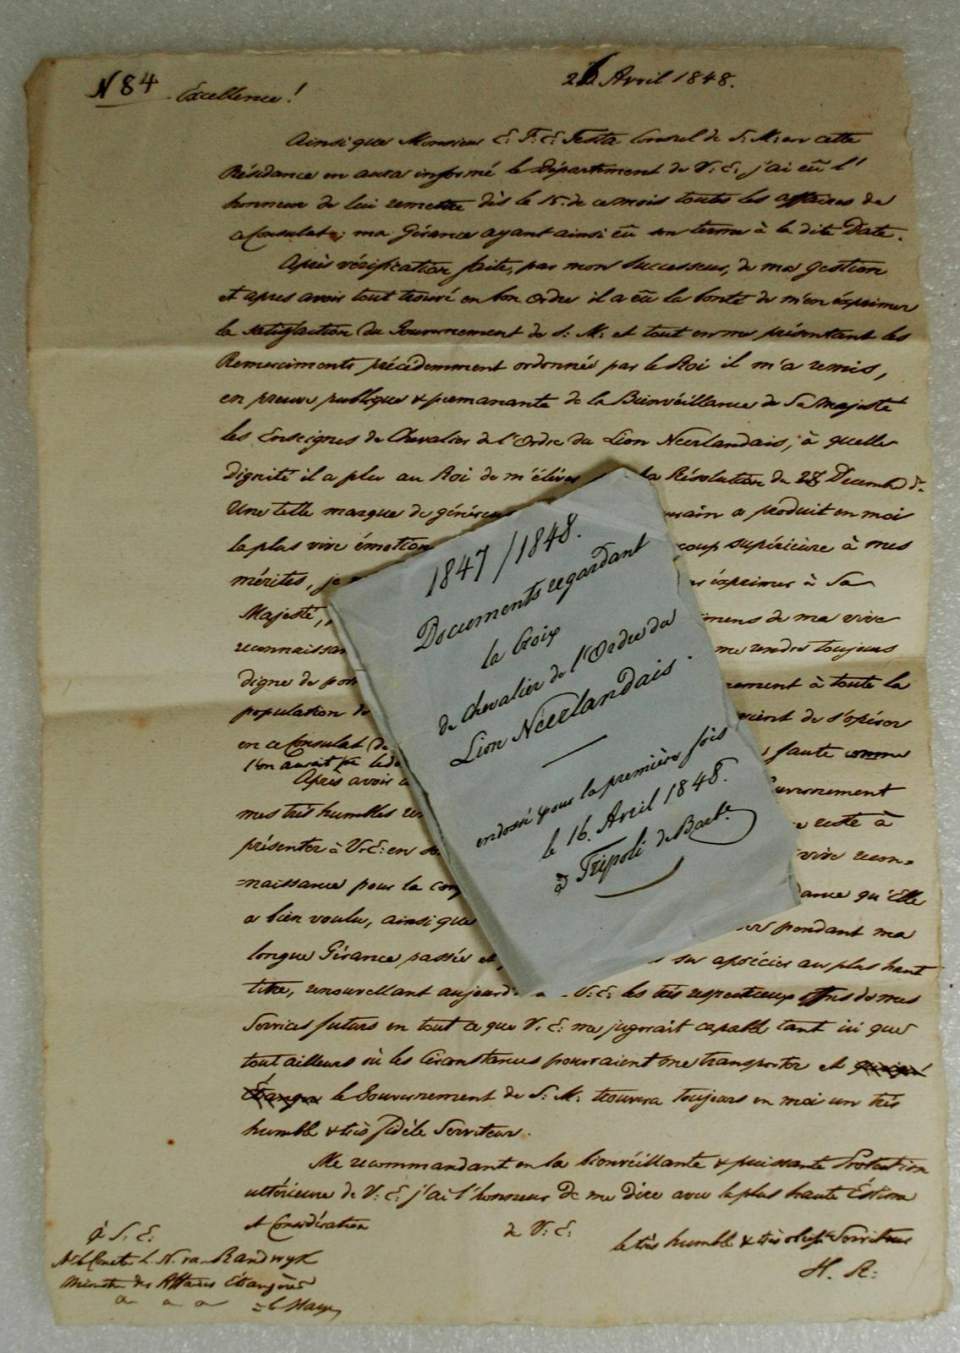 N 84
26 Avril 1848.
Excellence!
Ainsi que Monsieur E. F. E. Testa Consul de S. M. en cette
Résidance en aura informé le Département de V. E. j'ai eû l'
honneur de lui remettre dès le 10. de ce mois toutes les affaires de
ce Consulat; ma Gérance ayant ainsi eû un terme à la dite Date.
Après vérification faite, par mon Successeur, de ma gestion
et apres avoir tout trouvé en bon ordre il a eû la bonté de m'en éxprimer
la satisfaction du Gouvernement de S. M. et tout en me présentant les
Remerciments précédemment ordonnés par le Roi il m'a remis,
en preuve publique & permanante de la Bienvéillance de Sa Majesté
les Enseignes de Chevalier de l'Ordre du Lion Néerlandais, à quelle
dignité il a plu au Roi de m'éléver la Résolution du 28 Decemb.
Une telle marque de généreu a produit en moi
la plus vive émotion coup supérieure à mes
mérites, éxprimer à Sa
Majesté, de ma vive
reconnaissan me rendre toujours
digne de à toute la
population de de s'opérer
en ce Consulat faute
l'on aurait
Après avoir Gouvernement
mes très humbles reste à
présenter à V. E. en vive recon=
=naissance pour la qu'Elle
a bien voulu, ainsi que pendant ma
longue Gérance passée et su apsécier au plus haut
titre, renouvellant aujourd V. E. les très respectueux de mes
Services futurs en tout ce que V. E. me jugerait capable tant ici que
tout ailleurs où les Circonstances pourraient me transporter et
le Gouvernement de S. M. trouvera toujours en moi un très
humble & très fidéle Serviteur.
Me recommandant en la bienvéillante & puissante Protection
ultérieure de V. E. j'ai l'honneur de me dire avec la plus haute Éstime
et Considération
de V. E.
le très humble & très Serviteur
H. R:
à S. E.
van Randwyk
Ministre des Affaires Étrangères
a a a = la Haye
1847/1848.
Documents regardant
la Croix
de Chevalier de l'Ordre du
Lion Néerlandais.
endossé pour la première fois
le 16. Avril 1848.
à Tripoli de Barb.e